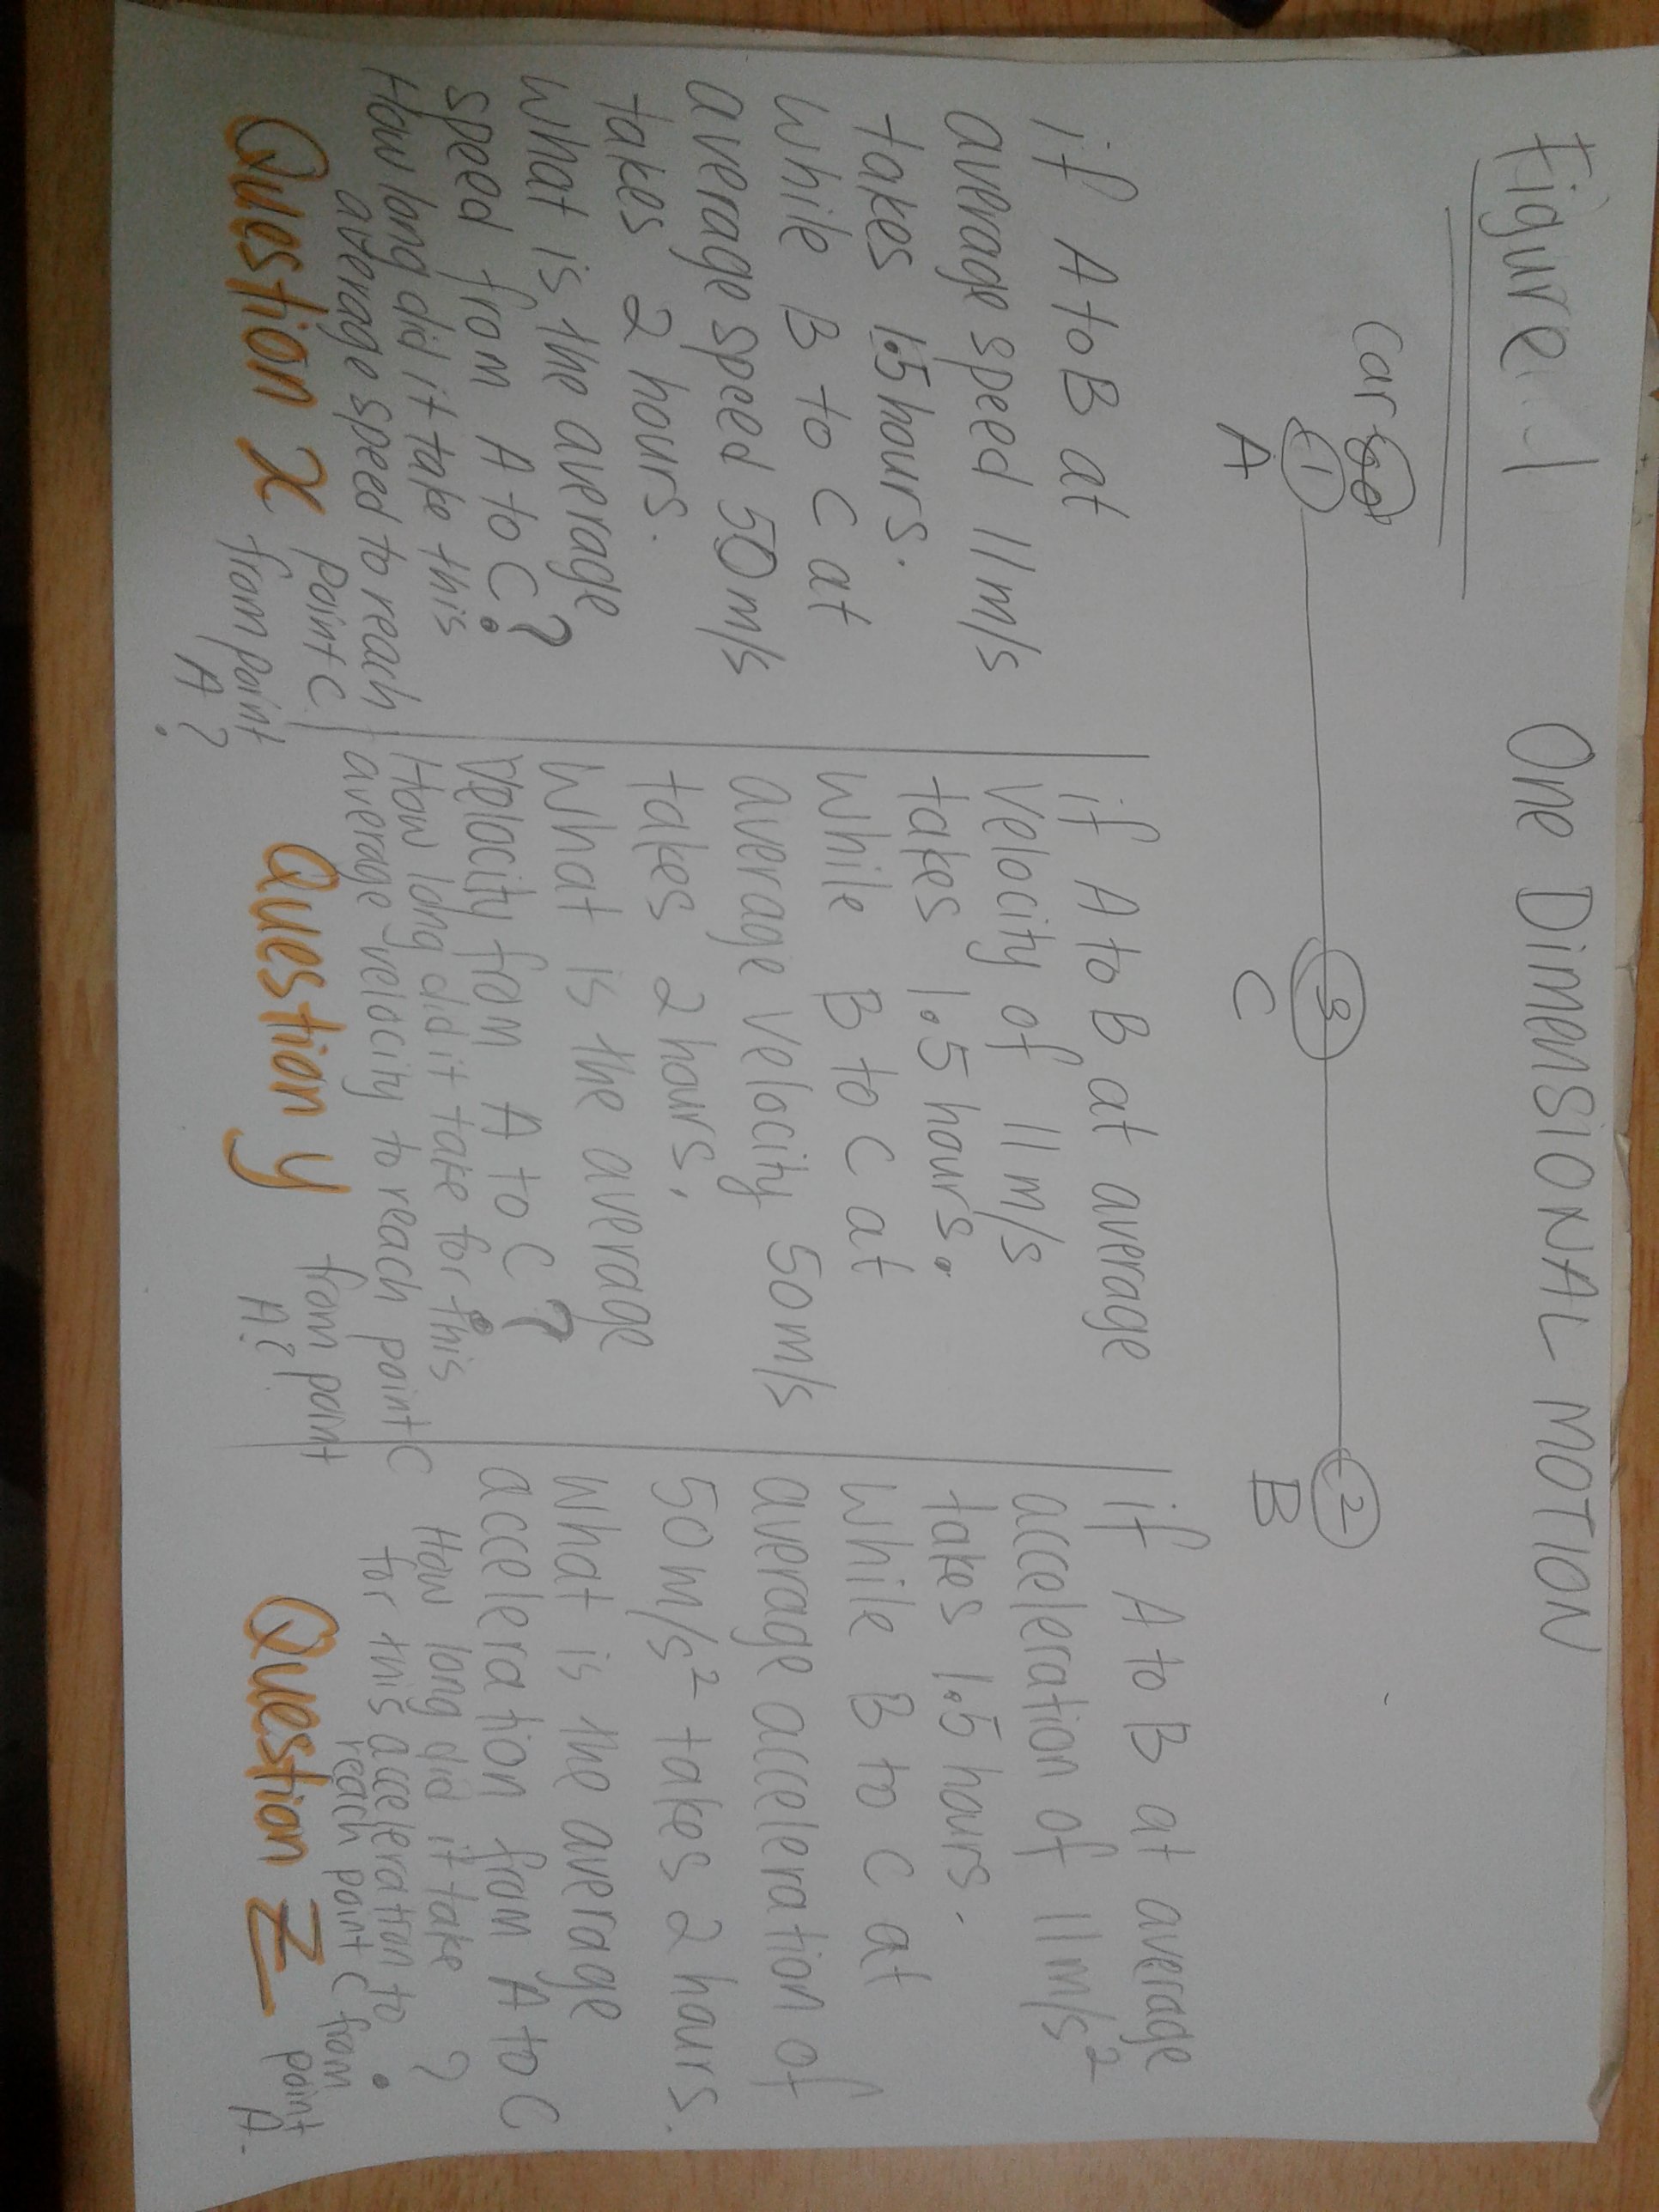 Figure 1 One DIMENSIONAL MOTION
Car
1 3 2
A C B
if A to B at
average speed 11m/s
takes 1.5 hours.
while B to C at
average speed 50m/s
takes 2 hours.
what is the average
speed from A to C?
How long did it take this
average speed to reach
point C
from point
A?
Question x
if A to B at average
Velocity of 11m/s
takes 1.5 hours.
while B to C at
average velocity 50m/s
takes 2 hours,
what is the average
Velocity from A to C?
How long did it take for this
average velocity to reach point C
from point
A?
Question y
if A to B at average
acceleration of 11m/s²
takes 1.5 hours.
while B to C at
average acceleration of
50m/s² takes 2 hours.
what is the average
acceleration from A to C
How long did it take ?
for this acceleration to
reach point C from
point
A.
Question Z